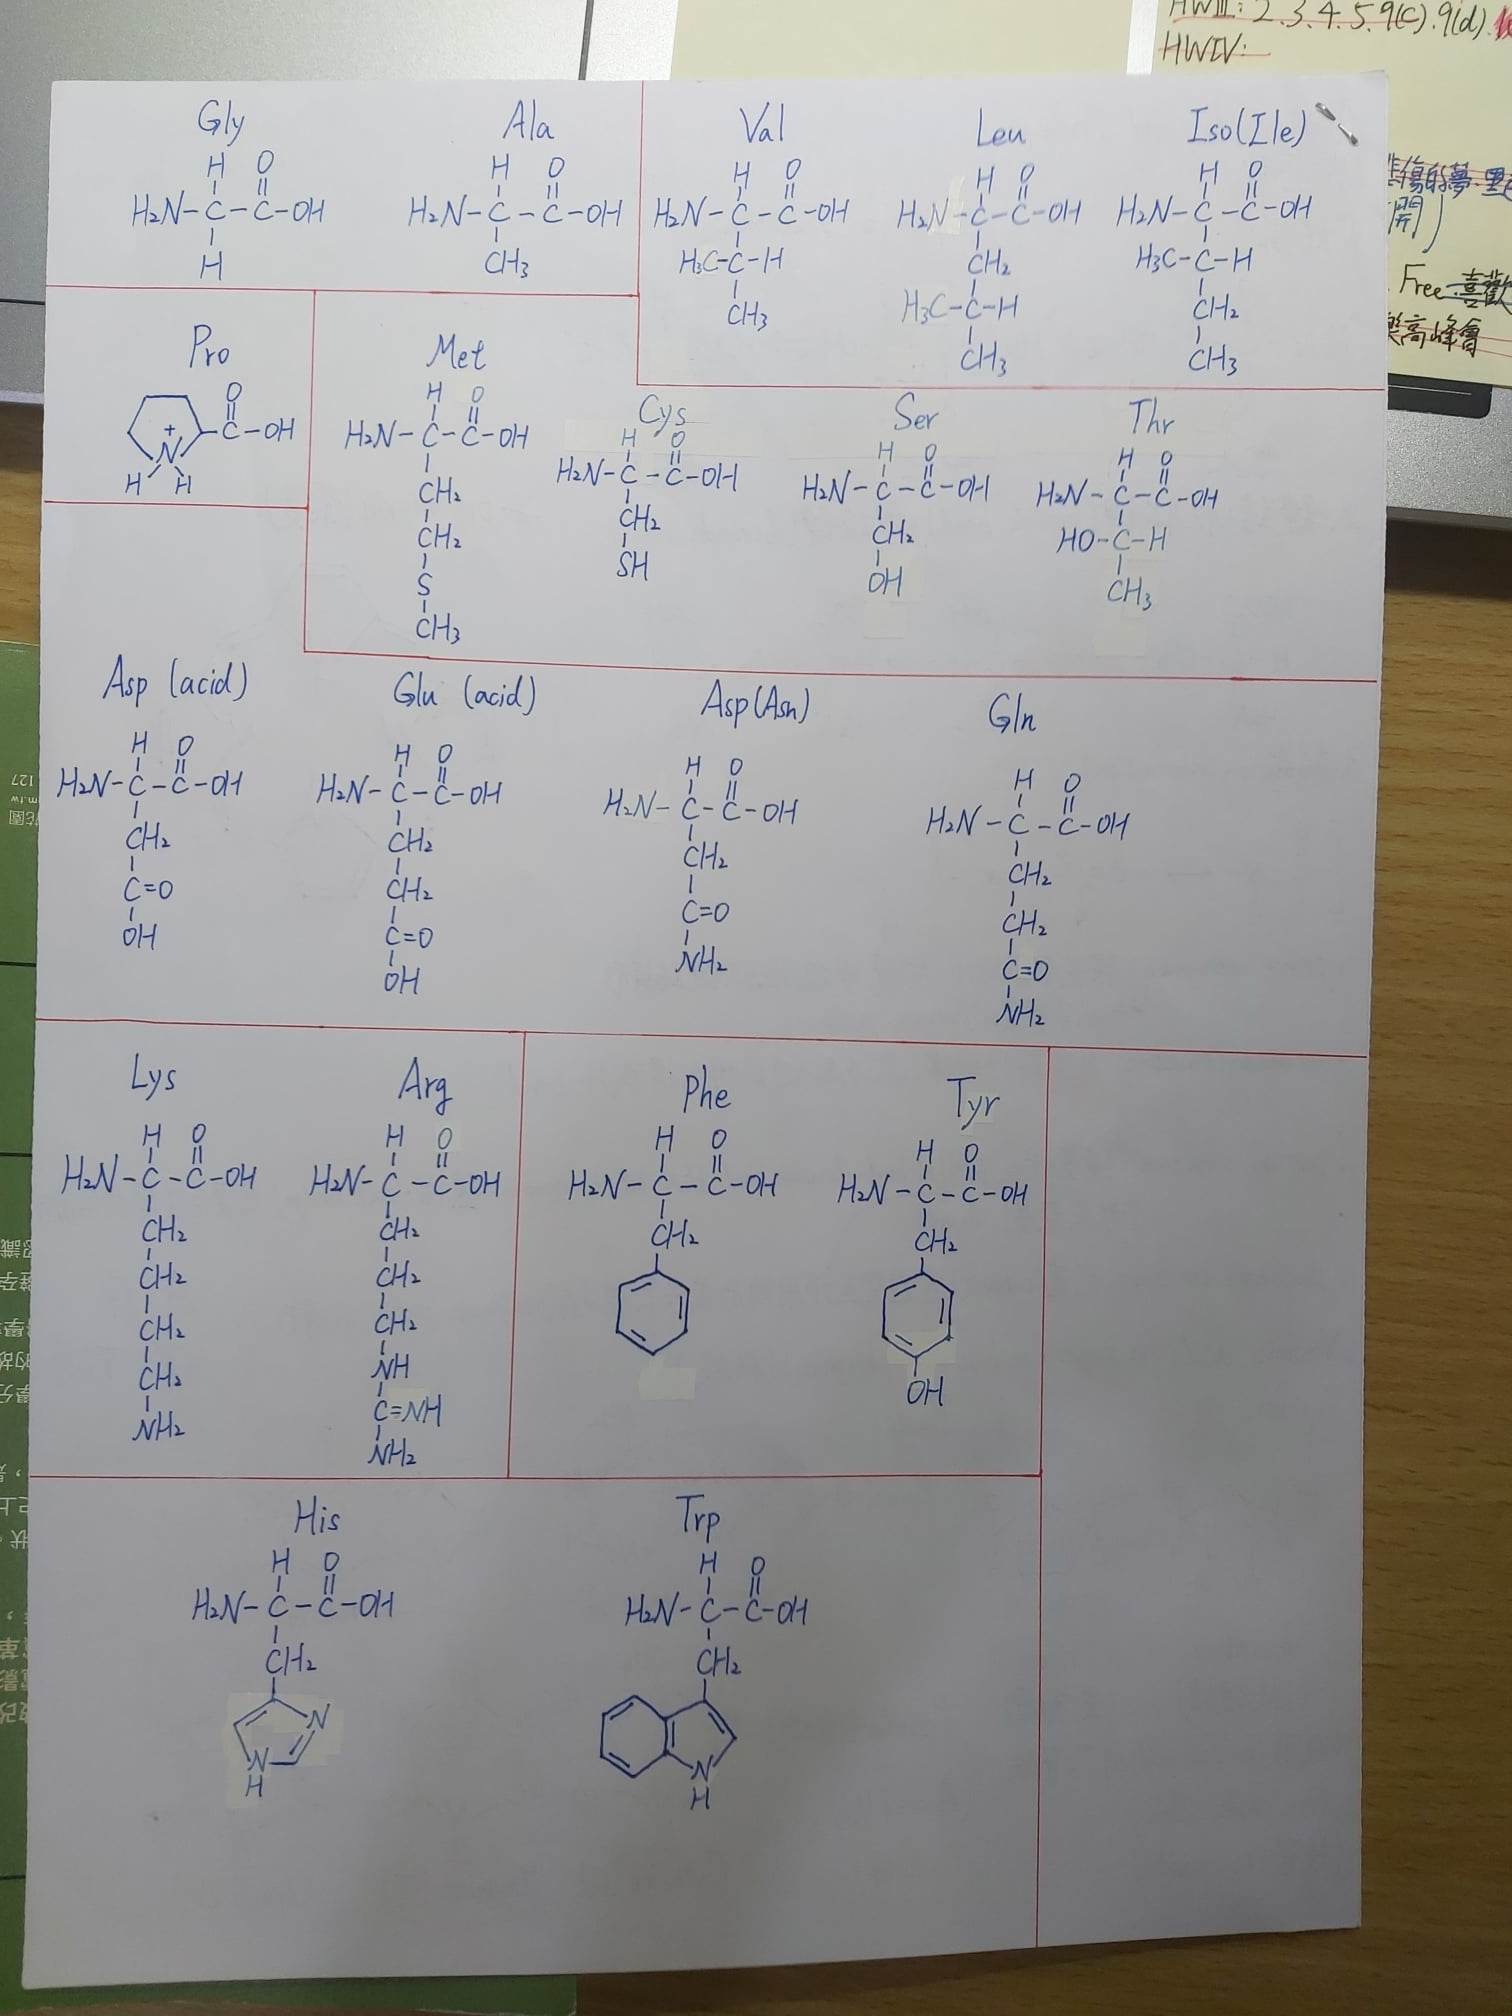 HWIII: 2.3.4.5.9(c).9(d).
HWIV:
Free.喜歡
高峰會
Gly
H O
H₂N-C-C-OH
H
Ala
H O
H₂N-C-C-OH
CH₃
Val
H O
H₂N-C-C-OH
H₃C-C-H
CH₃
Leu
H O
H₂N-C-C-OH
CH₂
H₃C-C-H
CH₃
Iso(Ile)
H O
H₂N-C-C-OH
H₃C-C-H
CH₂
CH₃
Pro
O
+
C-OH
N
H H
Met
H O
H₂N-C-C-OH
CH₂
CH₂
S
CH₃
Cys
H O
H₂N-C-C-OH
CH₂
SH
Ser
H O
H₂N-C-C-OH
CH₂
OH
Thr
H O
H₂N-C-C-OH
HO-C-H
CH₃
Asp (acid)
H O
H₂N-C-C-OH
CH₂
C=O
OH
Glu (acid)
H O
H₂N-C-C-OH
CH₂
CH₂
C=O
OH
Asp(Asn)
H O
H₂N-C-C-OH
CH₂
C=O
NH₂
Gln
H O
H₂N-C-C-OH
CH₂
CH₂
C=O
NH₂
Lys
H O
H₂N-C-C-OH
CH₂
CH₂
CH₂
CH₂
NH₂
Arg
H O
H₂N-C-C-OH
CH₂
CH₂
CH₂
NH
C=NH
NH₂
Phe
H O
H₂N-C-C-OH
CH₂
Tyr
H O
H₂N-C-C-OH
CH₂
OH
His
H O
H₂N-C-C-OH
CH₂
N
N
H
Trp
H O
H₂N-C-C-OH
CH₂
N
H